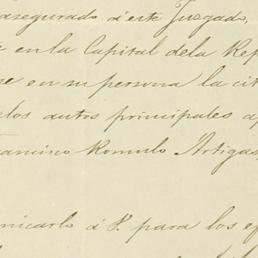 asegurado á este Juzgado,
en la Capital dela Rep
en su persona la cit
los autos principales ap
rancisco Romulo Artigas
nicarlo á V. para los ef